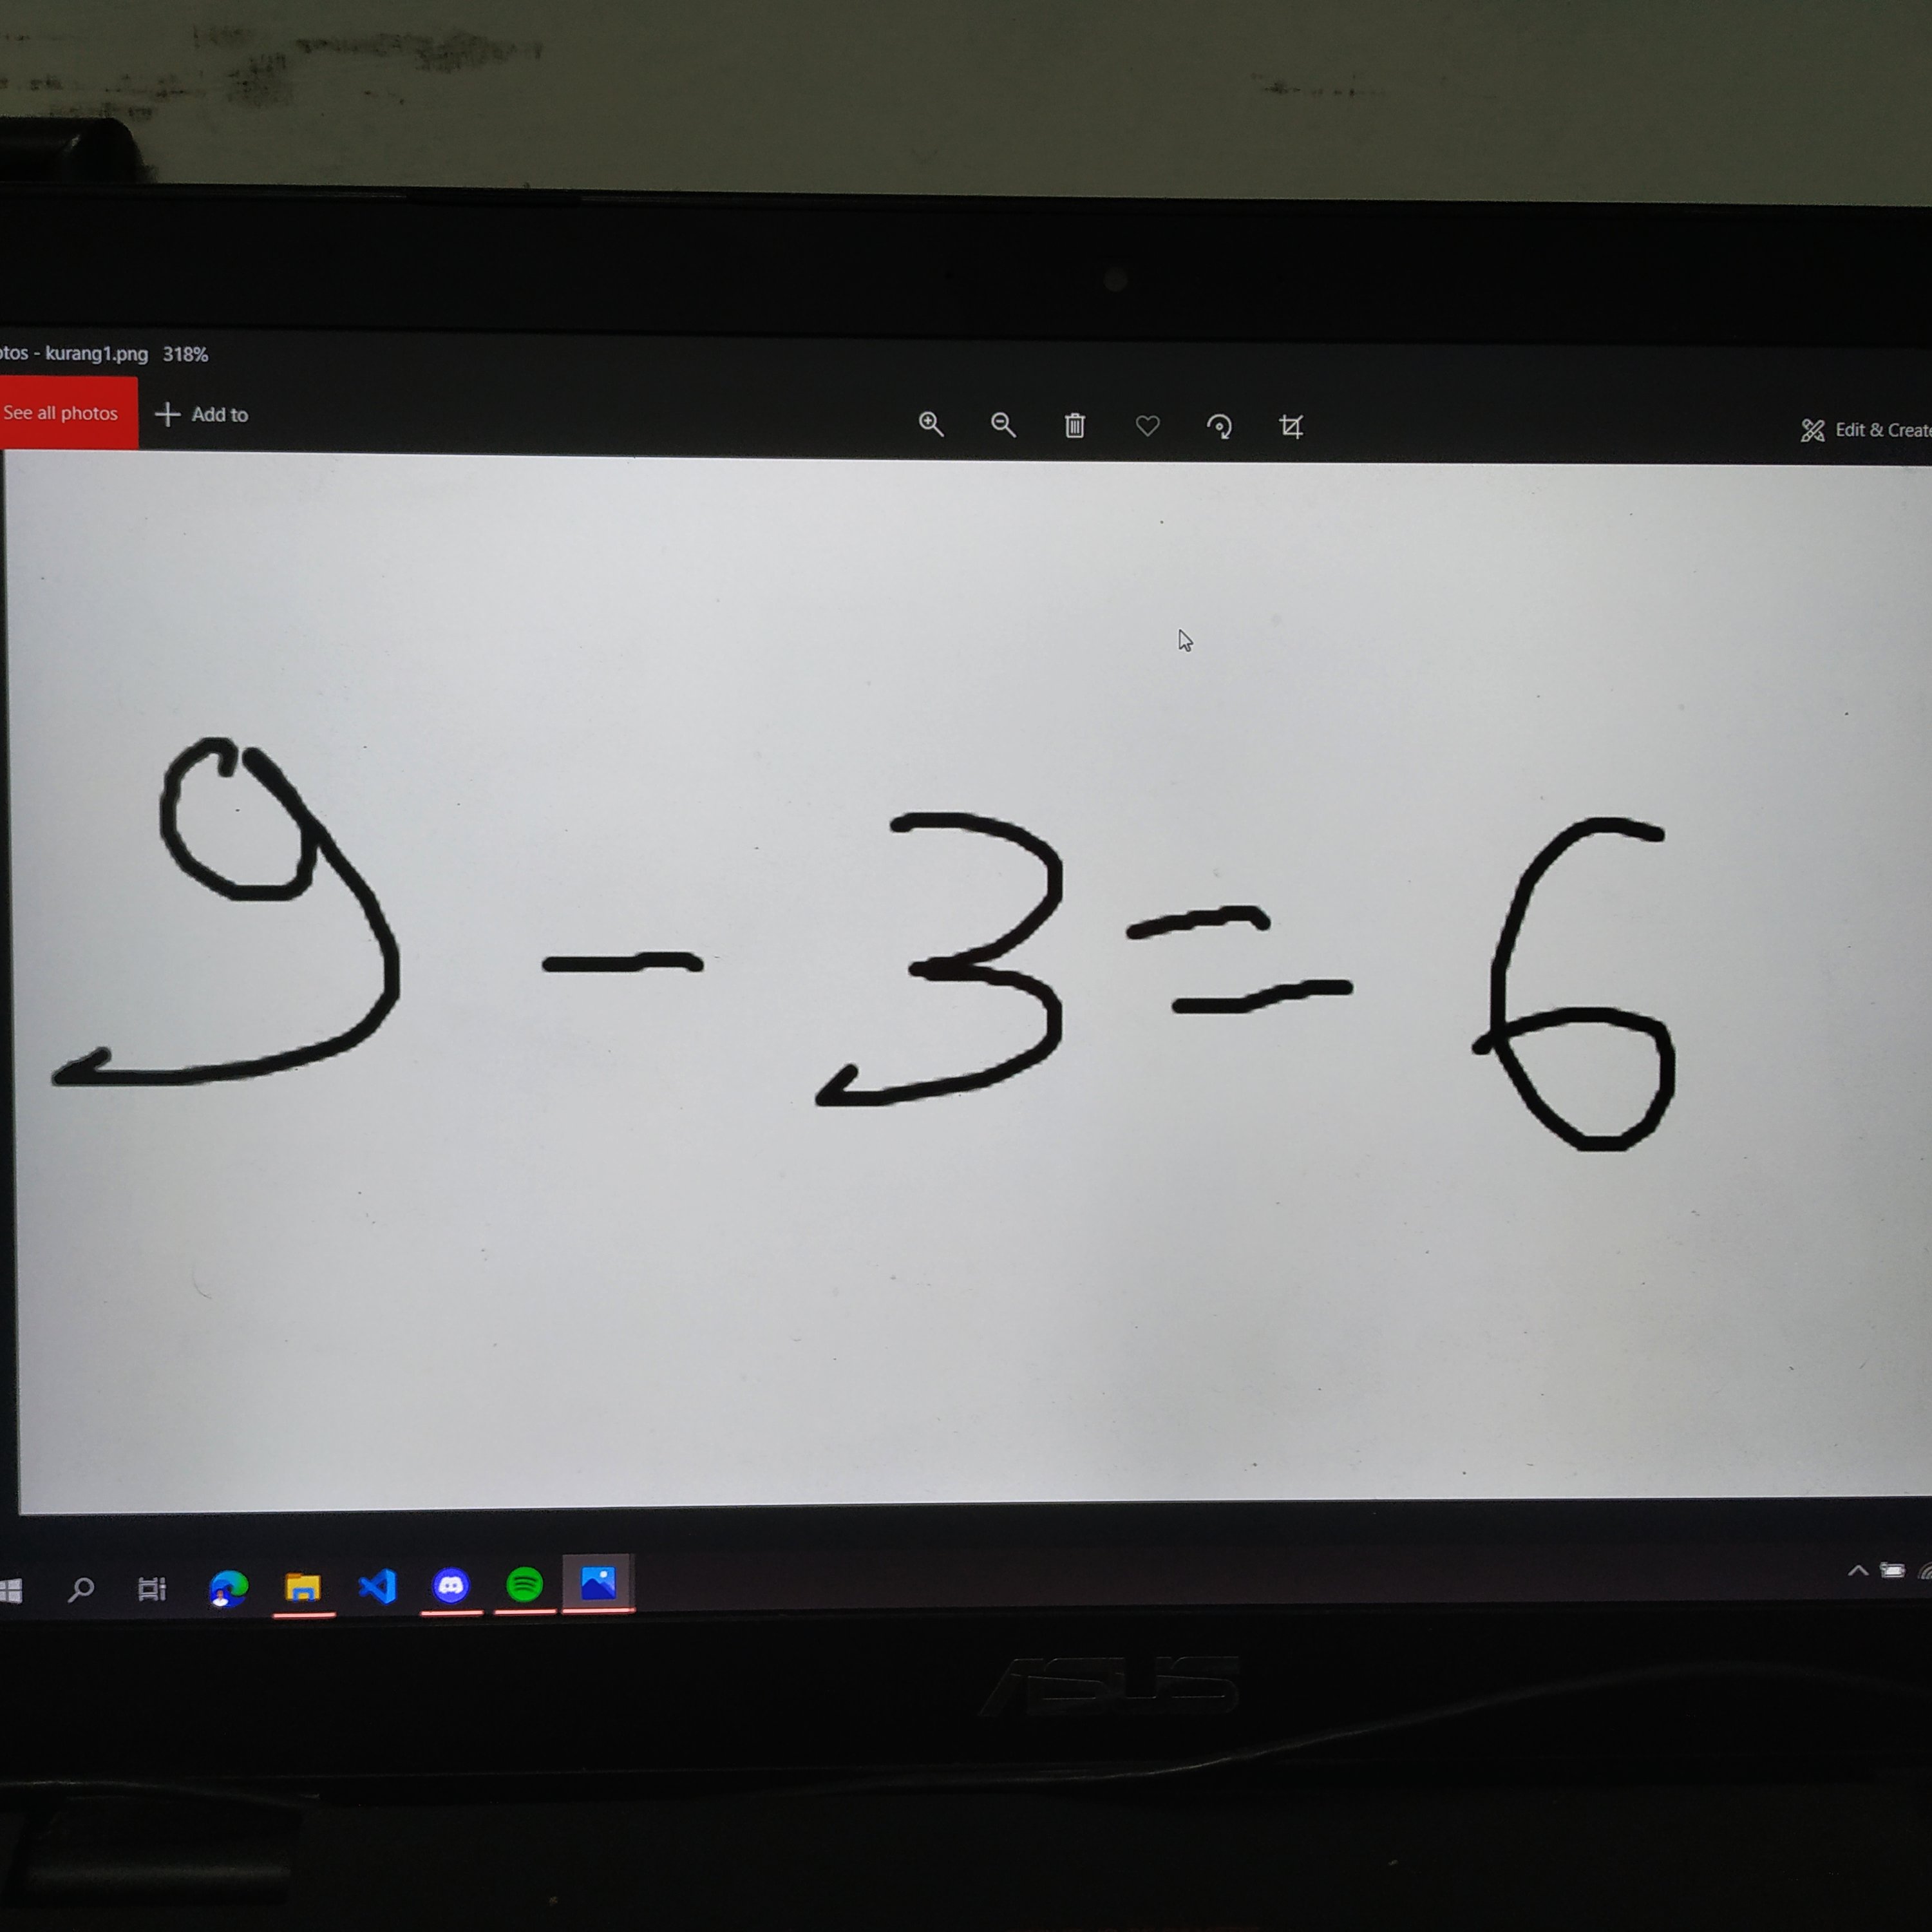 otos - kurang1.png 318%
See all photos
Add to
Edit & Create
9 - 3 = 6
ASUS